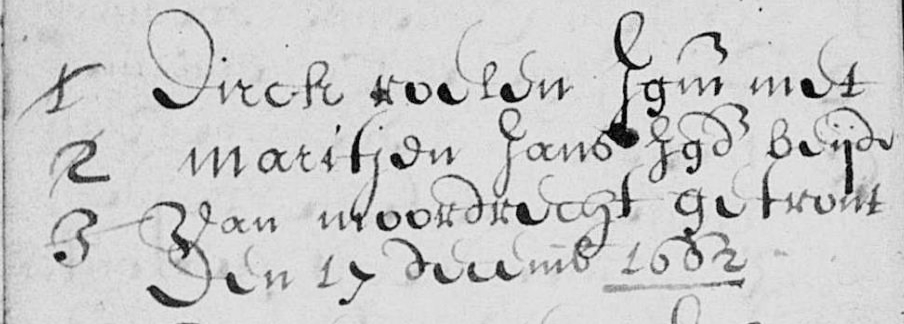 1 Dirck roelen Jgm met
2 maritjen Jans Jgd beijde
3 Van moordrecht getrout
Den 17 decemb 1662